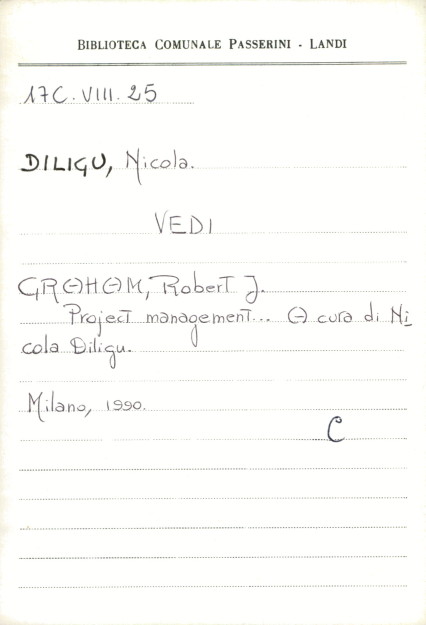 BIBLIOTECA COMUNALE PASSERINI - LANDI
17C.VIII.25
DILIGU, Nicola.
VEDI
GRAHAM, Robert J.
Project management... A cura di Ni
cola Diligu.
Milano, 1990.
C